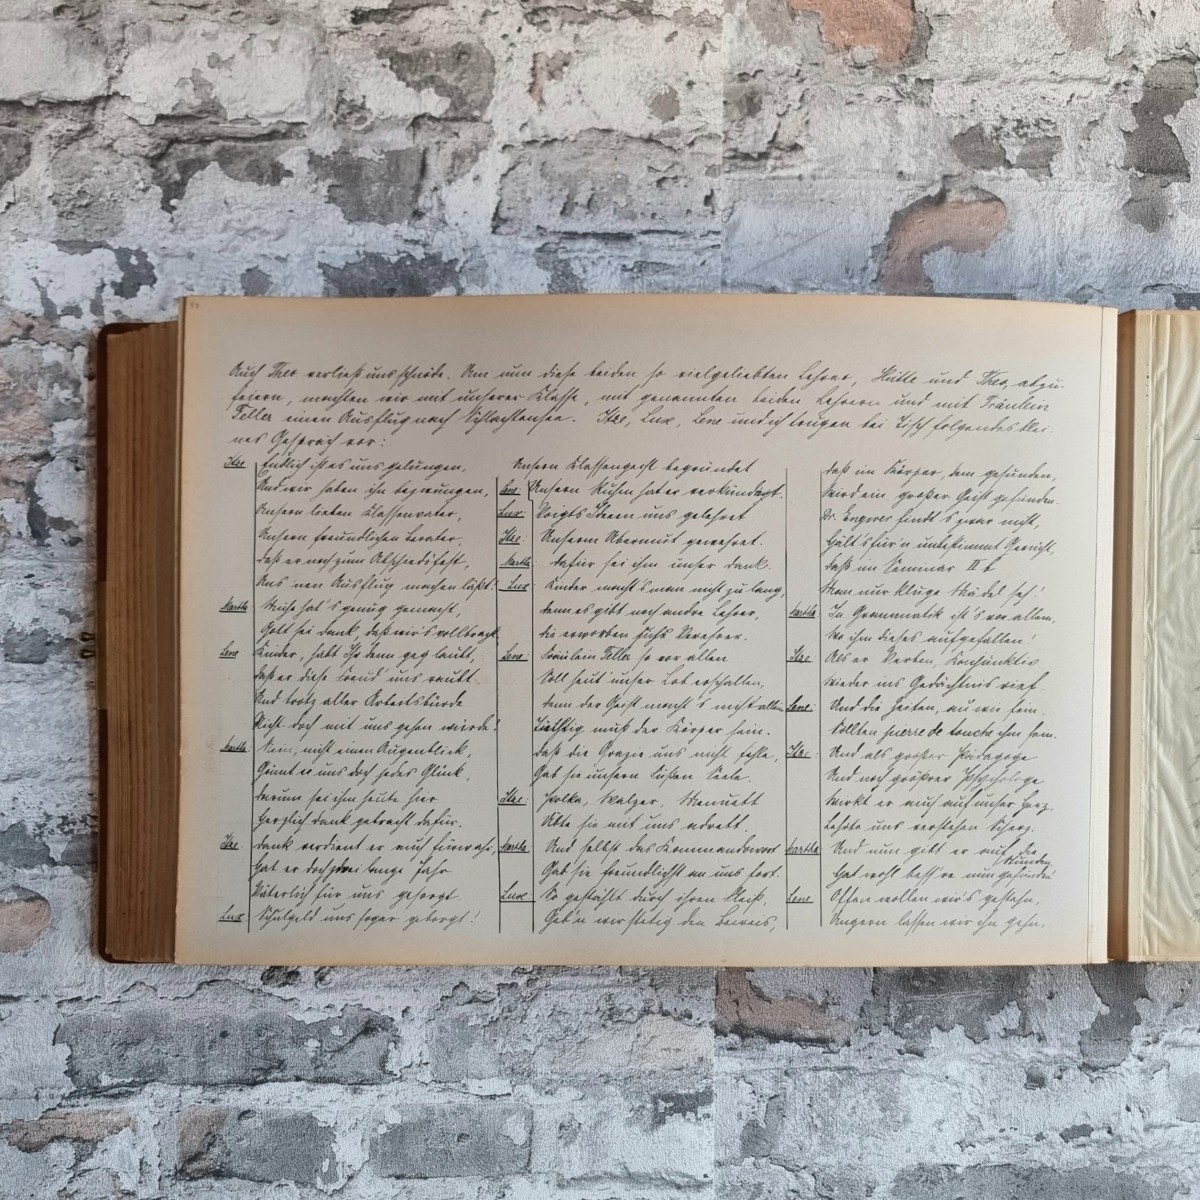 Auch Theo verließ uns schnöde. Um nun diese beiden so vielgeliebten Lehrer, Hütte und Theo, abzu-
feiern, machten wir mit unserer Klasse, mit genannten beiden Lehrern und mit Fräulein
Teller einen Ausflug nach Schlachtensee. Ilse, Lux, Lene und ich trugen bei Tisch folgendes klei-
nes Gespräch vor:
Ilse Endlich ist es uns gelungen,
Und wir haben ihn bezwungen,
Unsern lieben Klassenvater,
Unsern freundlichen Berater,
daß er noch zum Abschiedsfest,
Uns nen Ausflug machen läßt!
Martha Mühe hat's genug gemacht,
Gott sei Dank, daß wir's vollbracht.
Lene Kinder, habt Ihr denn geglaubt,
daß er diese Freud' uns raubt.
Und trotz aller Arbeitsbürde
Nicht doch mit uns gehen würde?
Martha Nein, nicht einen Augenblick,
Gönnt er uns doch jedes Glück,
darum sei ihm heute hier
Herzlich Dank gebracht dafür.
Ilse Dank verdient er auch fürwahr,
Hat er doch zwei lange Jahr
Väterlich für uns gesorgt
Lux Schulgeld uns sogar geborgt!
Unsern Klassengeist begründet
Lene: Unsern Ruhm hat er verkündigt.
Lux: Voigts Ideen uns gelehret
Ilse: Unserm Übermut gewehret.
Martha: dafür sei ihm unser Dank.
Lux Kinder macht's man nicht zu lang,
denn es gibt noch andre Lehrer,
die erworben sich Verehrer.
Lene: Fräulein Teller so vor allen
Soll heut' unser Lob erschallen,
denn der Geist macht's nicht allein
Kräftig muß der Körper sein.
daß die Grazie uns nicht fehle,
Gab sie unsern Füßen Seele.
Ilse: Polka, Walzer, Menuett
Übte sie mit uns adrett.
Martha Und selbst das Kommandowort
Gab sie freundlichst an uns fort.
Lux So gestählt durch ihren Fleiß,
Geb'n wir stetig den Beweis,
daß im Körper, dem gesunden,
Wird ein großer Geist gefunden.
Dr. Engwer findt's zwar nicht,
Hält's für'n unbestimmt Gerücht,
daß im Seminar II b
Man nur kluge Mädel seh'!
Martha In Grammatik ist's vor allem,
Wo ihm dieses aufgefallen!
Ilse: Als er Verben, Konjunktiv
Wieder ins Gedächtnis rief.
Lene: Und die Zeiten,
Sollten pierre de touche ihm sein.
Ilse: Und als großer Pädagoge
Und noch größrer Psychologe
Wirkt er auch auf unser Herz,
Lehrte uns verstehen Scherz.
Martha Und nun gibt er auf die Stunden
Hat wohl bess're nun gefunden!
Lene: Offen wollen wir's gestehn,
Ungern lassen wir ihn gehn.